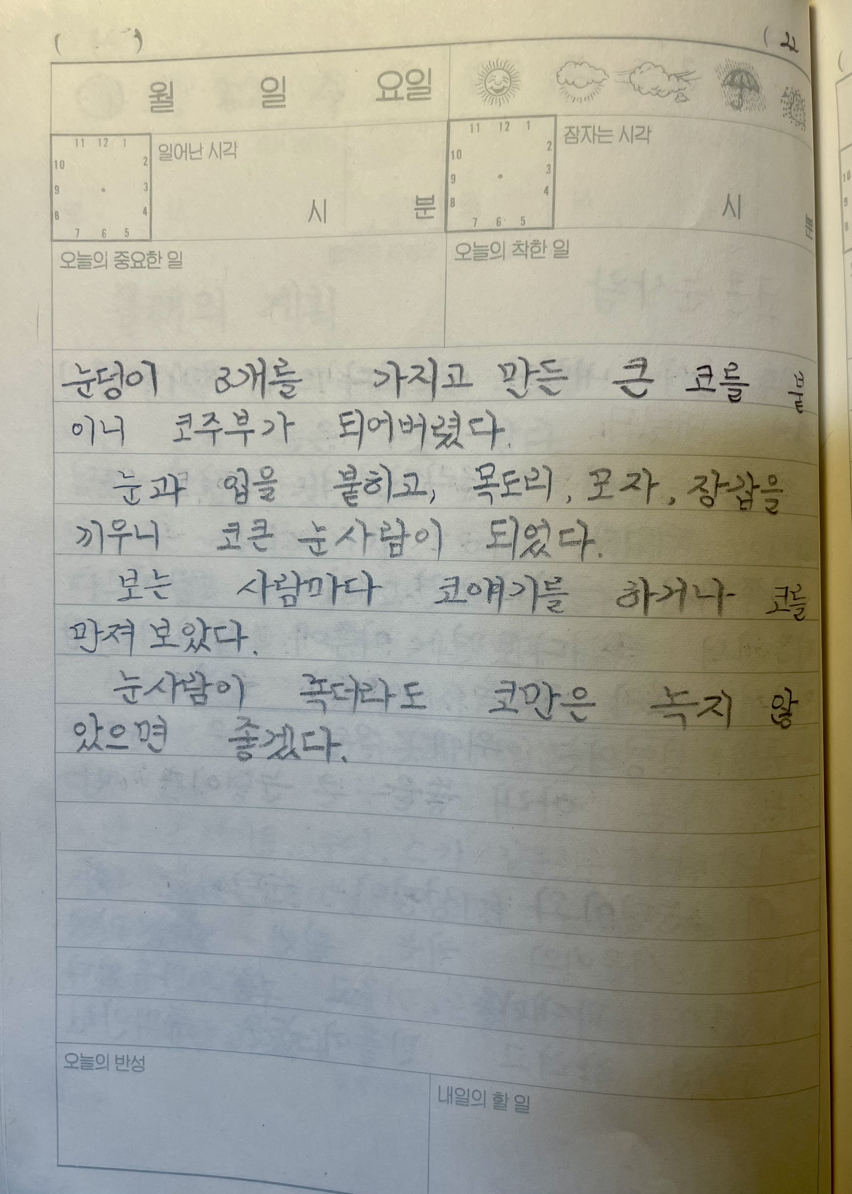 ( ) ( 22
월 일 요일
11 12 1 일어난 시각 11 12 1 잠자는 시각
10 2 10 2
9 3 9 3
8 4 시 분 8 4 시 분
7 6 5 7 6 5
오늘의 중요한 일 오늘의 착한 일
눈덩이 3개를 가지고 만든 큰 코를 붙
이니 코주부가 되어버렸다.
눈과 입을 붙히고, 목도리, 모자, 장갑을
끼우니 코큰 눈사람이 되었다.
보는 사람마다 코얘기를 하거나 코를
만져 보았다.
눈사람이 녹더라도 코만은 녹지 않
았으면 좋겠다.
오늘의 반성
내일의 할 일